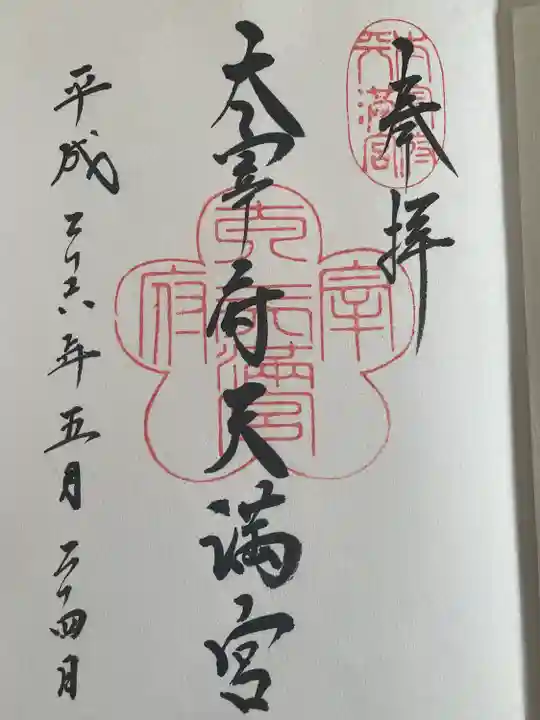 奉拝
太宰府天満宮
平成二十六年五月二十四日
太宰府
天満宮